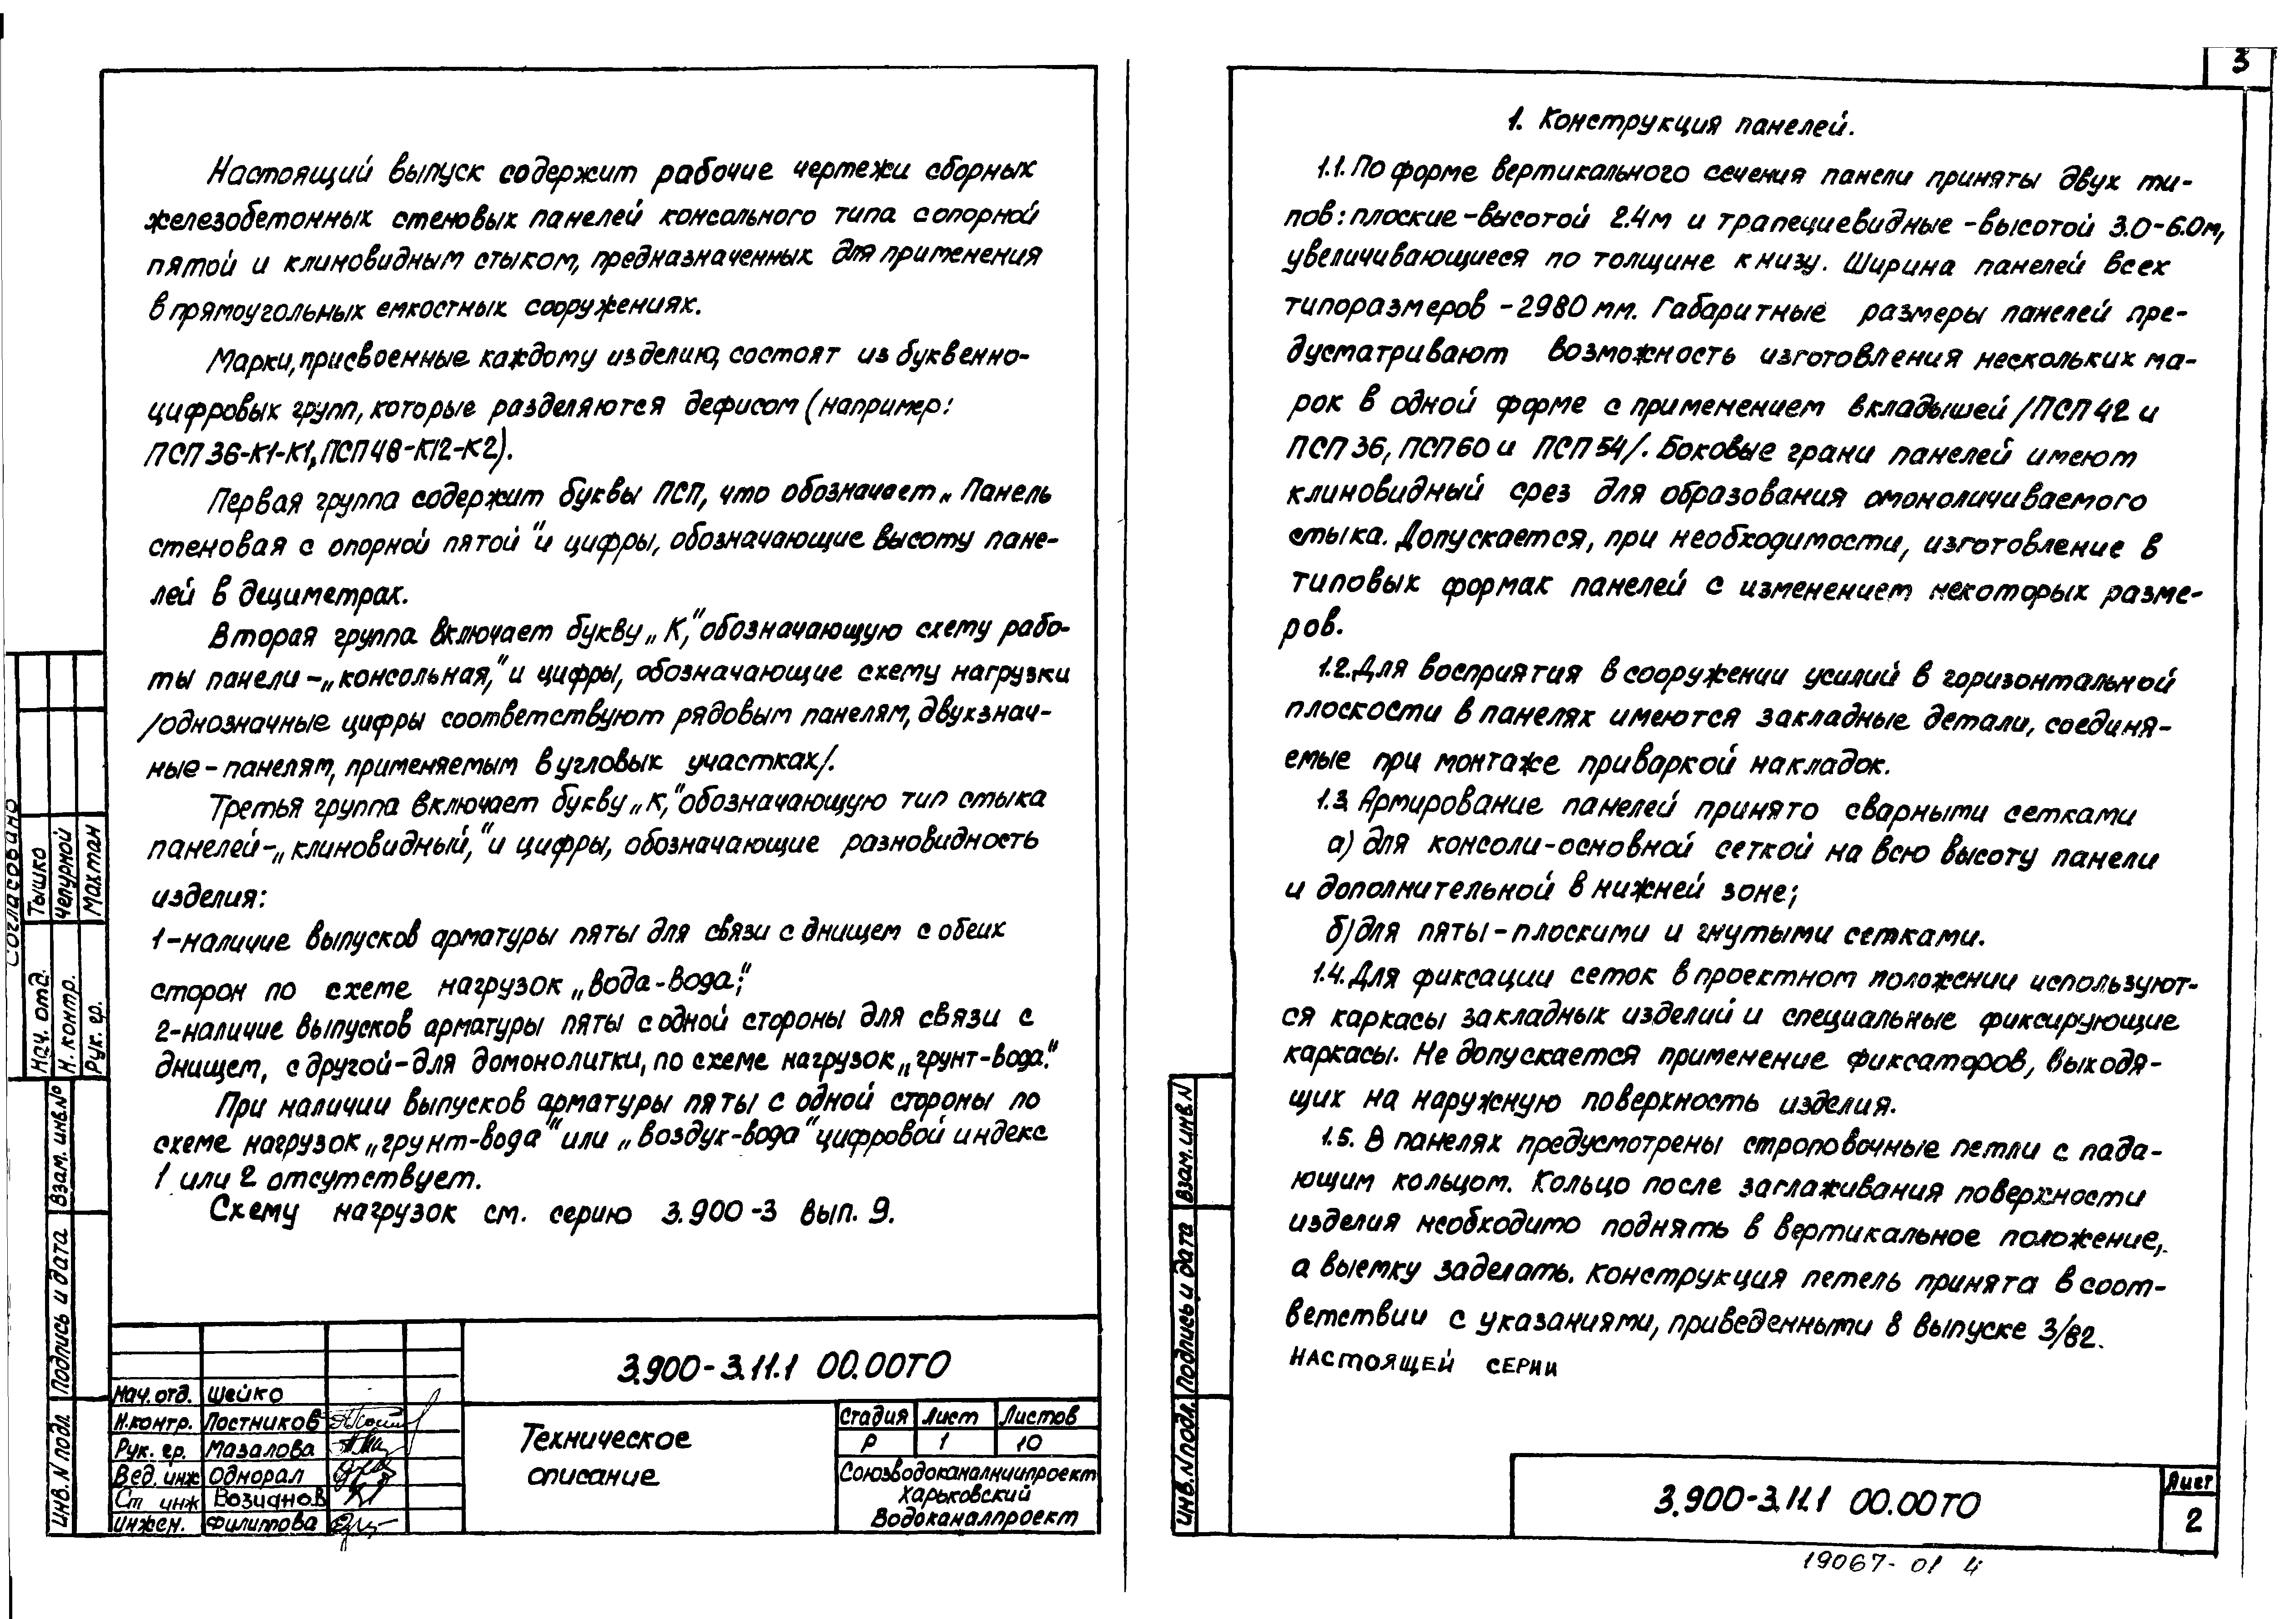 Настоящий выпуск содержит рабочие чертежи сборных
железобетонных стеновых панелей консольного типа с опорной
пятой и клиновидным стыком, предназначенных для применения
в прямоугольных емкостных сооружениях.
Марки, присвоенные каждому изделию, состоят из буквенно-
цифровых групп, которые разделяются дефисом (например:
ПСП 36-К1-К1, ПСП 48-К12-К2).
Первая группа содержит буквы ПСП, что обозначает „Панель
стеновая с опорной пятой" и цифры, обозначающие высоту пане-
лей в дециметрах.
Вторая группа включает букву „К", обозначающую схему рабо-
ты панели-„консольная", и цифры, обозначающие схему нагрузки
/однозначные цифры соответствуют рядовым панелям, двухзнач-
ные - панелям, применяемым в угловых участках/.
Третья группа включает букву „К", обозначающую тип стыка
панелей-„клиновидный", и цифры, обозначающие разновидность
изделия:
1-наличие выпусков арматуры пяты для связи с днищем с обеих
сторон по схеме нагрузок „вода-вода";
2-наличие выпусков арматуры пяты с одной стороны для связи с
днищем, с другой-для домонолитки, по схеме нагрузок „грунт-вода".
При наличии выпусков арматуры пяты с одной стороны по
схеме нагрузок „грунт-вода" или „воздух-вода" цифровой индекс
1 или 2 отсутствует.
Схему нагрузок см. серию 3.900-3 вып. 9.
Согласовано
Нач. отд. Тышко
Н. контр. Чепурной
Рук. гр. Махтан
Взам. инв. №
Подпись и дата
Инв. N подл.
Нач. отд. Шейко
Н.контр. Постников
Рук. гр. Мазалова
Вед. инж Однорал
Ст инж Возианов
Инжен. Филиппова
3.900-3.11.1 00.00ТО
Техническое
описание
Стадия Лист Листов
Р 1 10
Союзводоканалниипроект
Харьковский
Водоканалпроект
3
1. Конструкция панелей.
1.1. По форме вертикального сечения панели приняты двух ти-
пов: плоские-высотой 2.4м и трапециевидные-высотой 3.0-6.0м,
увеличивающиеся по толщине книзу. Ширина панелей всех
типоразмеров - 2980 мм. Габаритные размеры панелей пре-
дусматривают возможность изготовления нескольких ма-
рок в одной форме с применением вкладышей /ПСП 42 и
ПСП 36, ПСП60 и ПСП 54/. Боковые грани панелей имеют
клиновидный срез для образования омоноличиваемого
стыка. Допускается, при необходимости, изготовление в
типовых формах панелей с изменением некоторых разме-
ров.
1.2. Для восприятия в сооружении усилий в горизонтальной
плоскости в панелях имеются закладные детали, соединя-
емые при монтаже приваркой накладок.
1.3. Армирование панелей принято сварными сетками
а) для консоли-основной сеткой на всю высоту панели
и дополнительной в нижней зоне;
б) для пяты-плоскими и гнутыми сетками.
1.4. Для фиксации сеток в проектном положении используют-
ся каркасы закладных изделий и специальные фиксирующие
каркасы. Не допускается применение фиксаторов, выходя-
щих на наружную поверхность изделия.
1.5. В панелях предусмотрены строповочные петли с пада-
ющим кольцом. Кольцо после заглаживания поверхности
изделия необходимо поднять в вертикальное положение,
а выемку заделать. Конструкция петель принята в соот-
ветствии с указаниями, приведенными в выпуске 3/82.
НАСТОЯЩЕЙ СЕРИИ
Взам. инв. N
Подпись и дата
Инв. N подл.
3.900-3.11.1 00.00ТО
Лист
2
19067-01 4